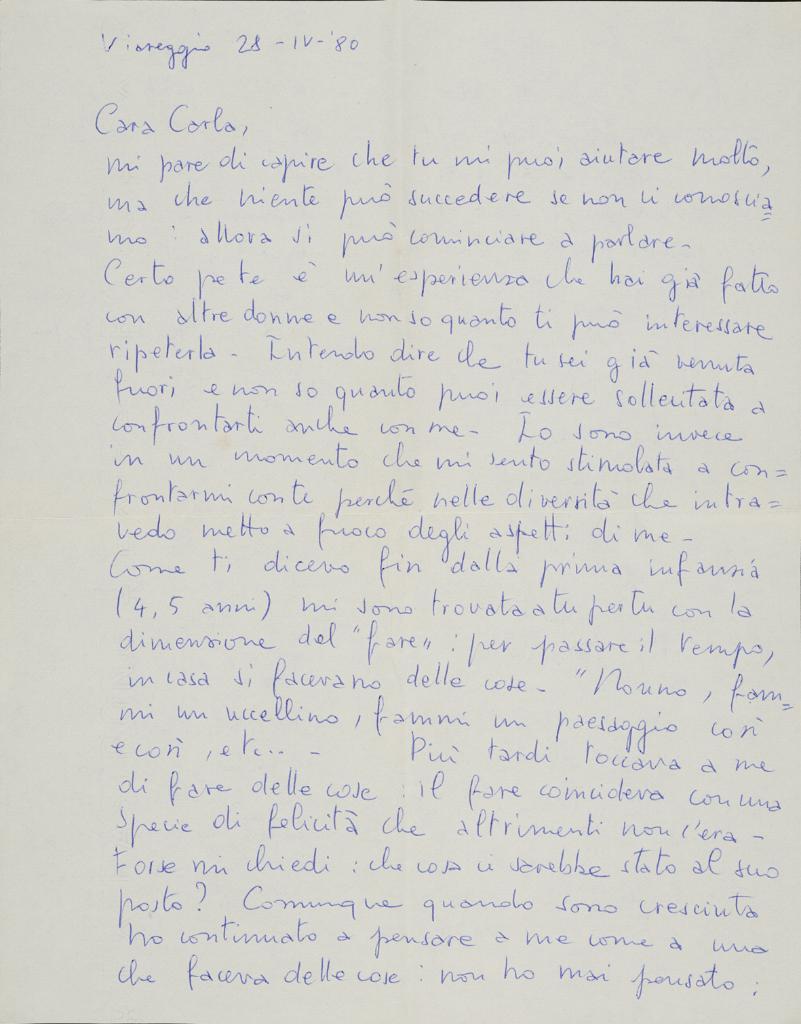 Viareggio 28-IV-'80
Cara Carla,
mi pare di capire che tu mi puoi aiutare molto,
ma che niente può succedere se non ci conoscia=
mo : allora si può cominciare a parlare-
Certo pe te è un'esperienza che hai già fatto
con altre donne e non so quanto ti può interessare
ripeterla - Intendo dire che tu sei già venuta
fuori e non so quanto puoi essere sollecitata a
confrontarti anche con me- Io sono invece
in un momento che mi sento stimolata a con=
frontarmi con te perché nelle diversità che intra=
vedo metto a fuoco degli aspetti di me -
Come ti dicevo fin dalla prima infanzia
(4, 5 anni) mi sono trovata a tu per tu con la
dimensione del "fare" : per passare il tempo,
in casa si facevano delle cose- "Nonno, fam=
mi un uccellino, fammi un paesaggio così
e così, etc... - Più tardi toccava a me
di fare delle cose : il fare coincideva con una
specie di felicità che altrimenti non c'era-
Forse mi chiedi : che cosa ci sarebbe stato al suo
posto? Comunque quando sono cresciuta
ho continuato a pensare a me come a una
che faceva delle cose : non ho mai pensato :